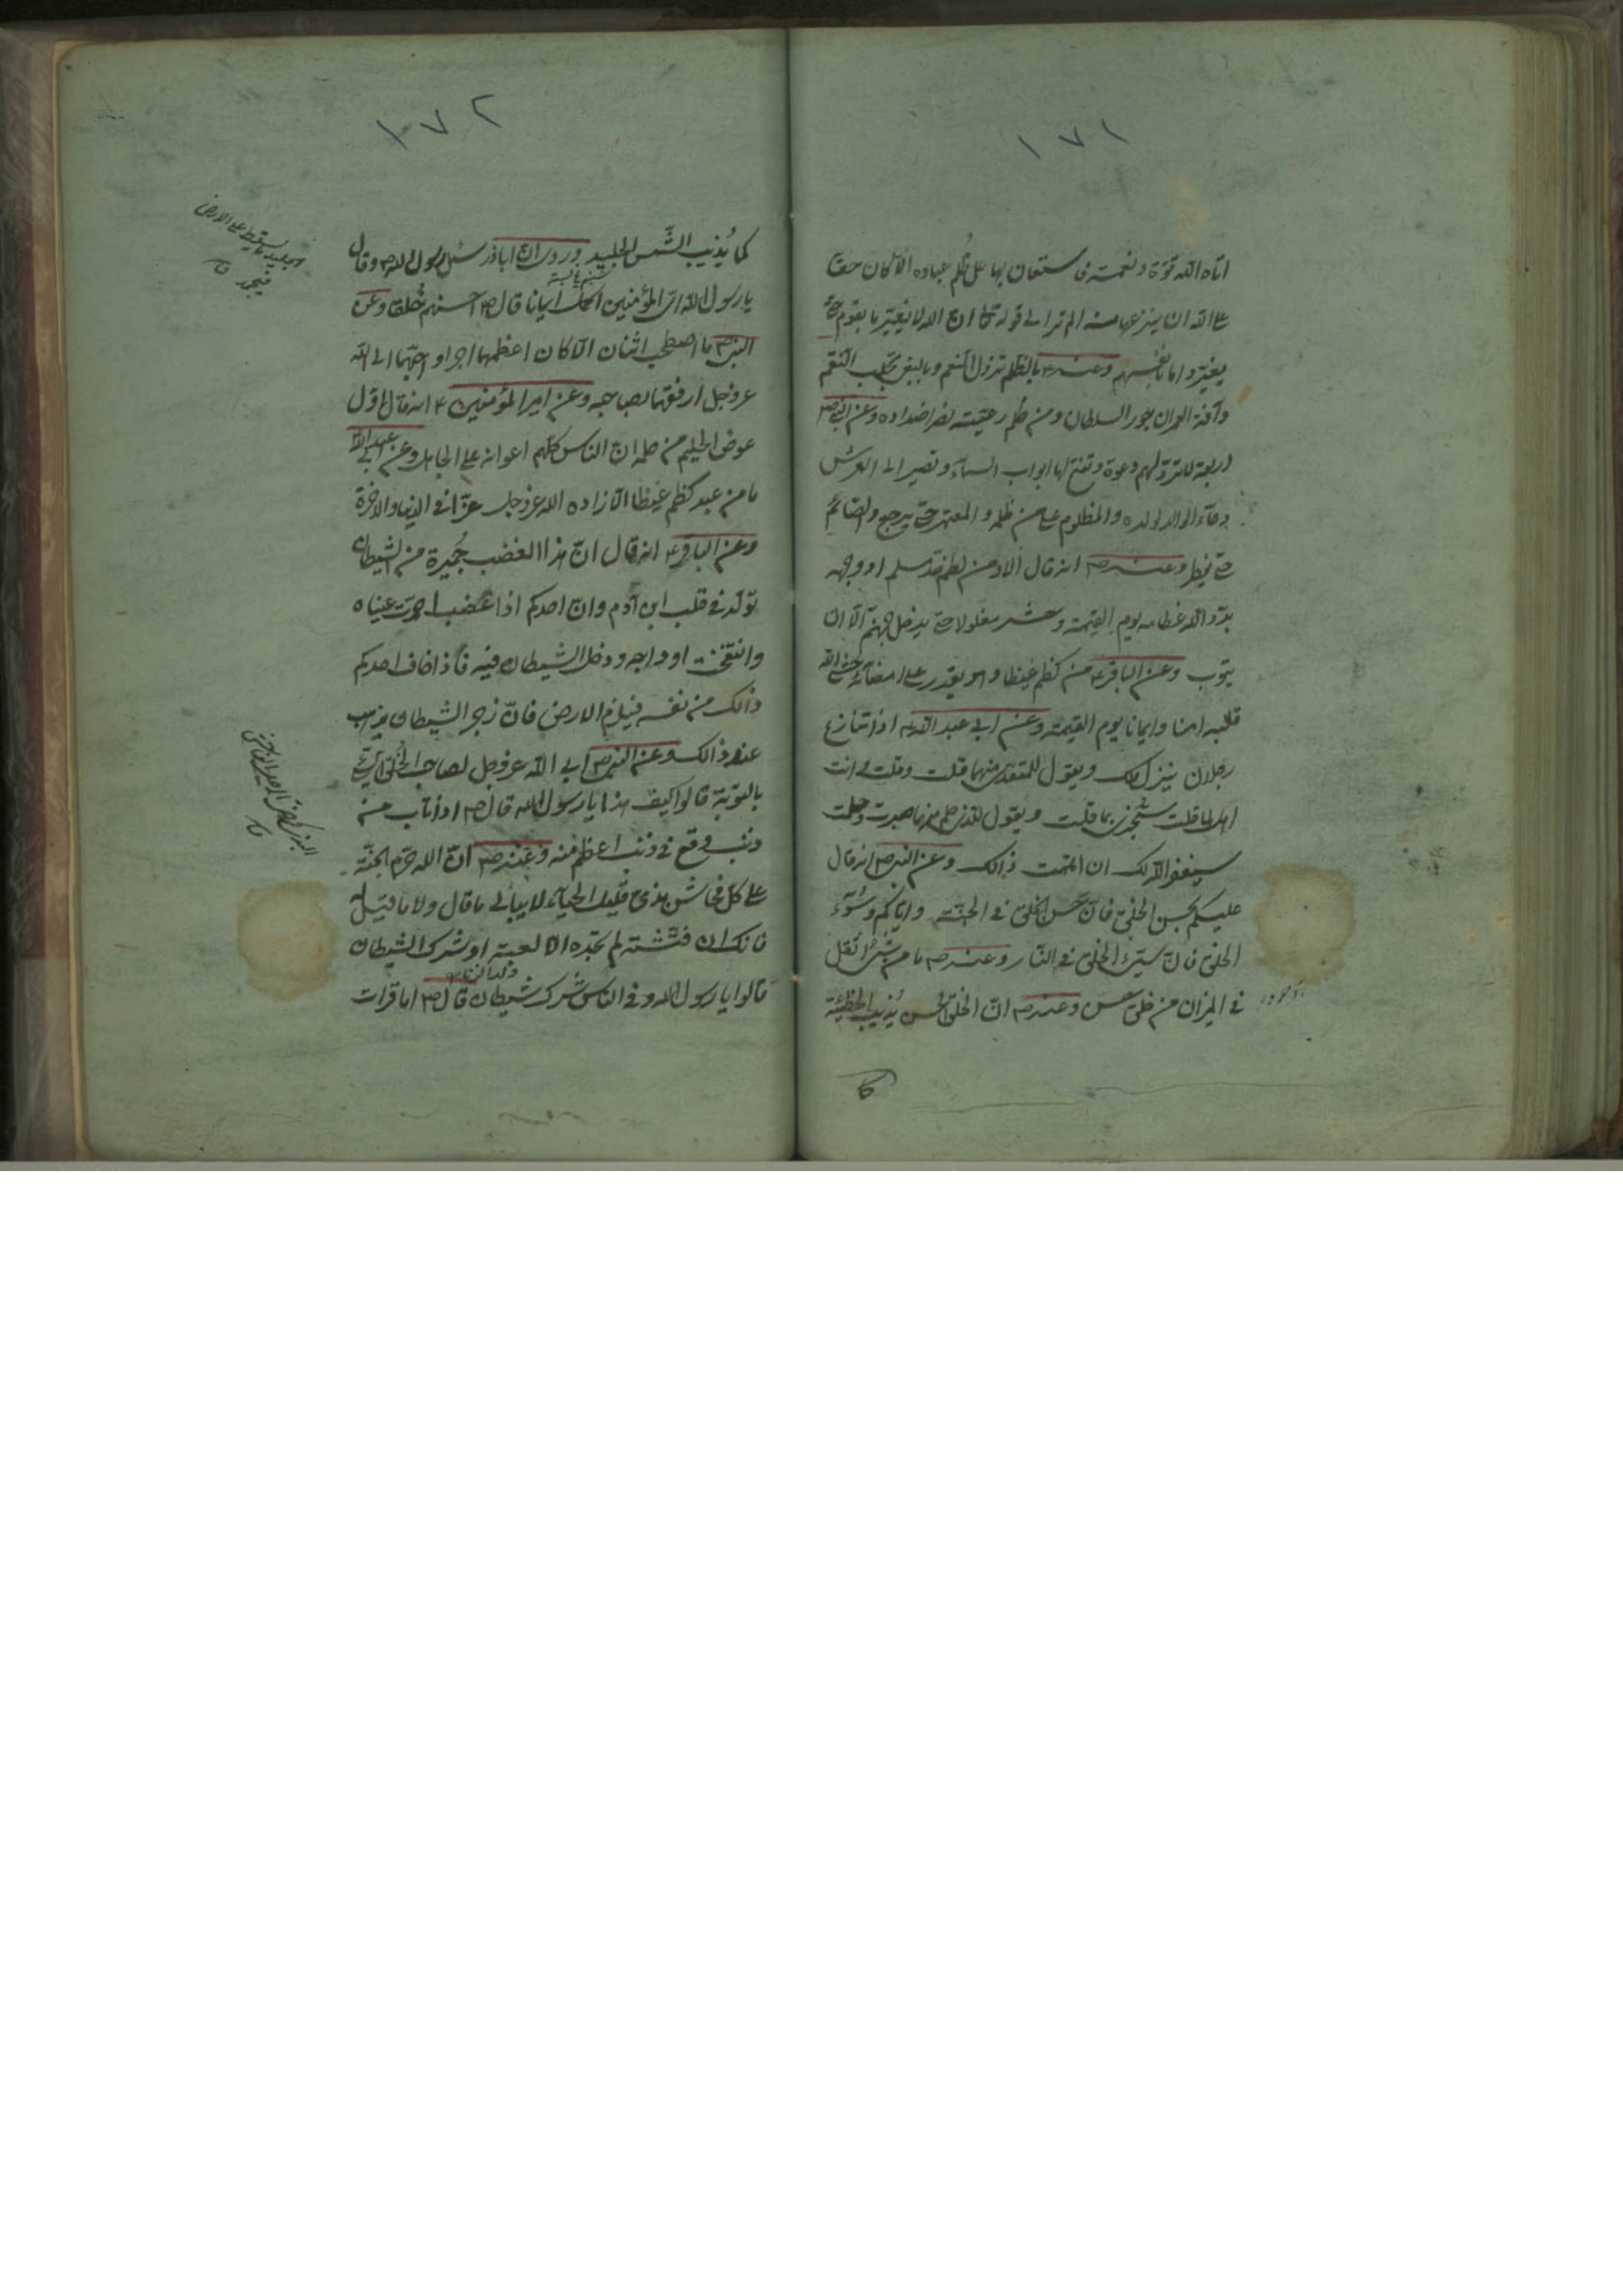 ١٧١
اتاه الله قوة ونعمة فاستعان بها على ظلم عباده الا كان حقا
على الله ان ينزعها منه الم تر الى قوله تعالى ان الله لا يغير ما بقوم حتى
يغيروا ما بانفسهم وعنه ع بالظلم تزول النعم وبالبغى تجلب النقم
وآفة العمران جور السلطان ومن ظلم رعيته نصر اضداده وعن النبى ص
اربعة لا ترد لهم دعوة وتفتح لها ابواب السماء وتصير الى العرش
دعاء الوالد لولده والمظلوم على من ظلمه والمعتمر حتى يرجع والصائم
حتى يفطر وعنه ص انه قال الا ومن لطم خد مسلم او وجهه
بدد الله عظامه يوم القيمة وحشر مغلولا حتى يدخل جهنم الا ان
يتوب وعن الباقر ع من كظم غيظا وهو يقدر على امضائه حشى الله
قلبه امنا وايمانا يوم القيمة وعن ابى عبد الله ع اذا تنازع
رجلان ينزل ملك ويقول للمتعدى منهما قلت وقلت وانت
اهل لما قلت ستجزى بما قلت ويقول للذى حلم منهما صبرت وحلمت
سيغفر الله لك ان اتممت ذالك وعن النبى ص انه قال
عليكم بحسن الخلق فان حسن الخلق فى الجنة واياكم وسوء
الخلق فان سيئ الخلق فى النار وعنه ص ما من شئ اثقل
فى الميزان من خلق حسن وعنه ص ان الخلق الحسن يذيب الخطيئة
كما
١٧٢
كما يذيب الشمس الجليد وروى ان اباذر سئل رسول الله ص وقال
يا رسول الله اى المؤمنين اكمل ايمانا قال ص احسنهم خلقا وعن
النبى ص ما اصطحب اثنان الا كان اعظمهما اجرا واحبهما الى الله
عز وجل ارفقهما بصاحبه وعن امير المؤمنين ع انه قال اول
عوض الحليم من حلمه ان الناس كلهم اعوانه على الجاهل وعن
ما من عبد كظم غيظا الا زاده الله عز وجل عزا فى الدنيا والاخرة
وعن الباقر ع انه قال ان هذا الغضب جميرة من الشيطان
توقد فى قلب ابن آدم وان احدكم اذا غضب احمرت عيناه
وانتفخت اوداجه ودخل الشيطان فيه فاذا خاف احدكم
ذالك من نفسه فيلزم الارض فان زجر الشيطان يذهب
عنه ذالك وعن النبى ص ابى الله عز وجل لصاحب الخلق السيئ
بالتوبة قالوا كيف هذا يا رسول الله قال ص اذا تاب من
ذنب وقع فى ذنب اعظم منه وعنه ص ان الله حرم الجنة
على كل فحاش بذى قليل الحياء لا يبالى ما قال ولا ما قيل له
فانك ان فتشته لم تجده الا لعبة او شرك الشيطان
قالوا يا رسول الله وفى الناس شرك شيطان قال ص اما قرات
الجليد ما يسقط على الارض
فيجمد